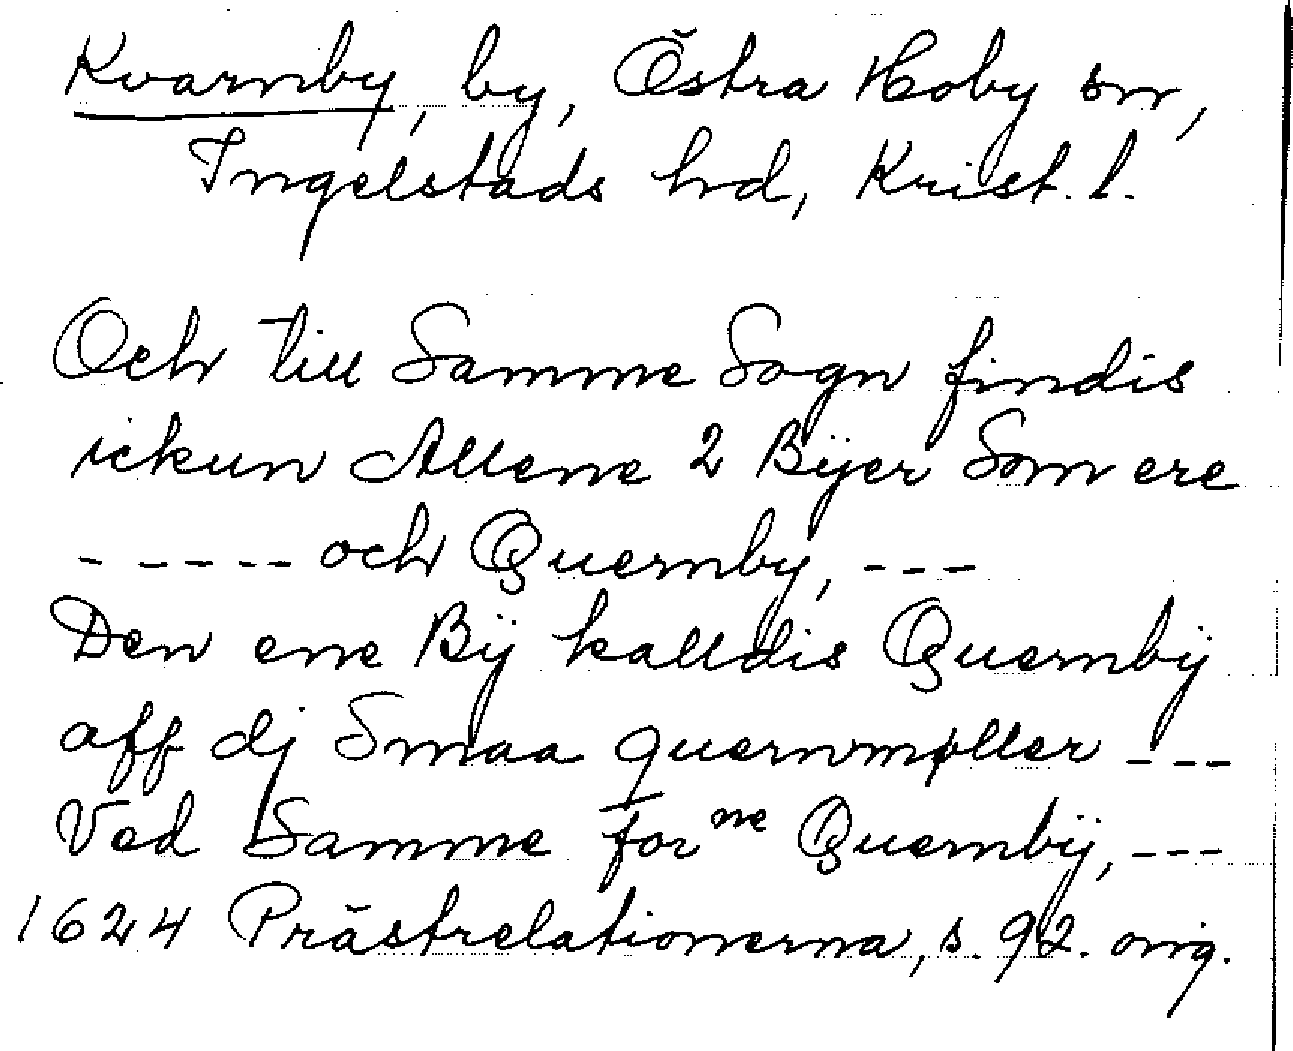 Kvarnby, by, Östra Hoby sn,
Ingelstads hd, Krist. l.
Och till Samme Sogn findis
ickun Allene 2 Bÿer Som ere
- - - - - och Quernby, - - -
Den ene Bÿ kalldis Quernbÿ
aff dj Smaa quernmøller - - -
Ved Samme for ne Quernbÿ, - - -
1624 Prästrelationerna, s. 92. orig.